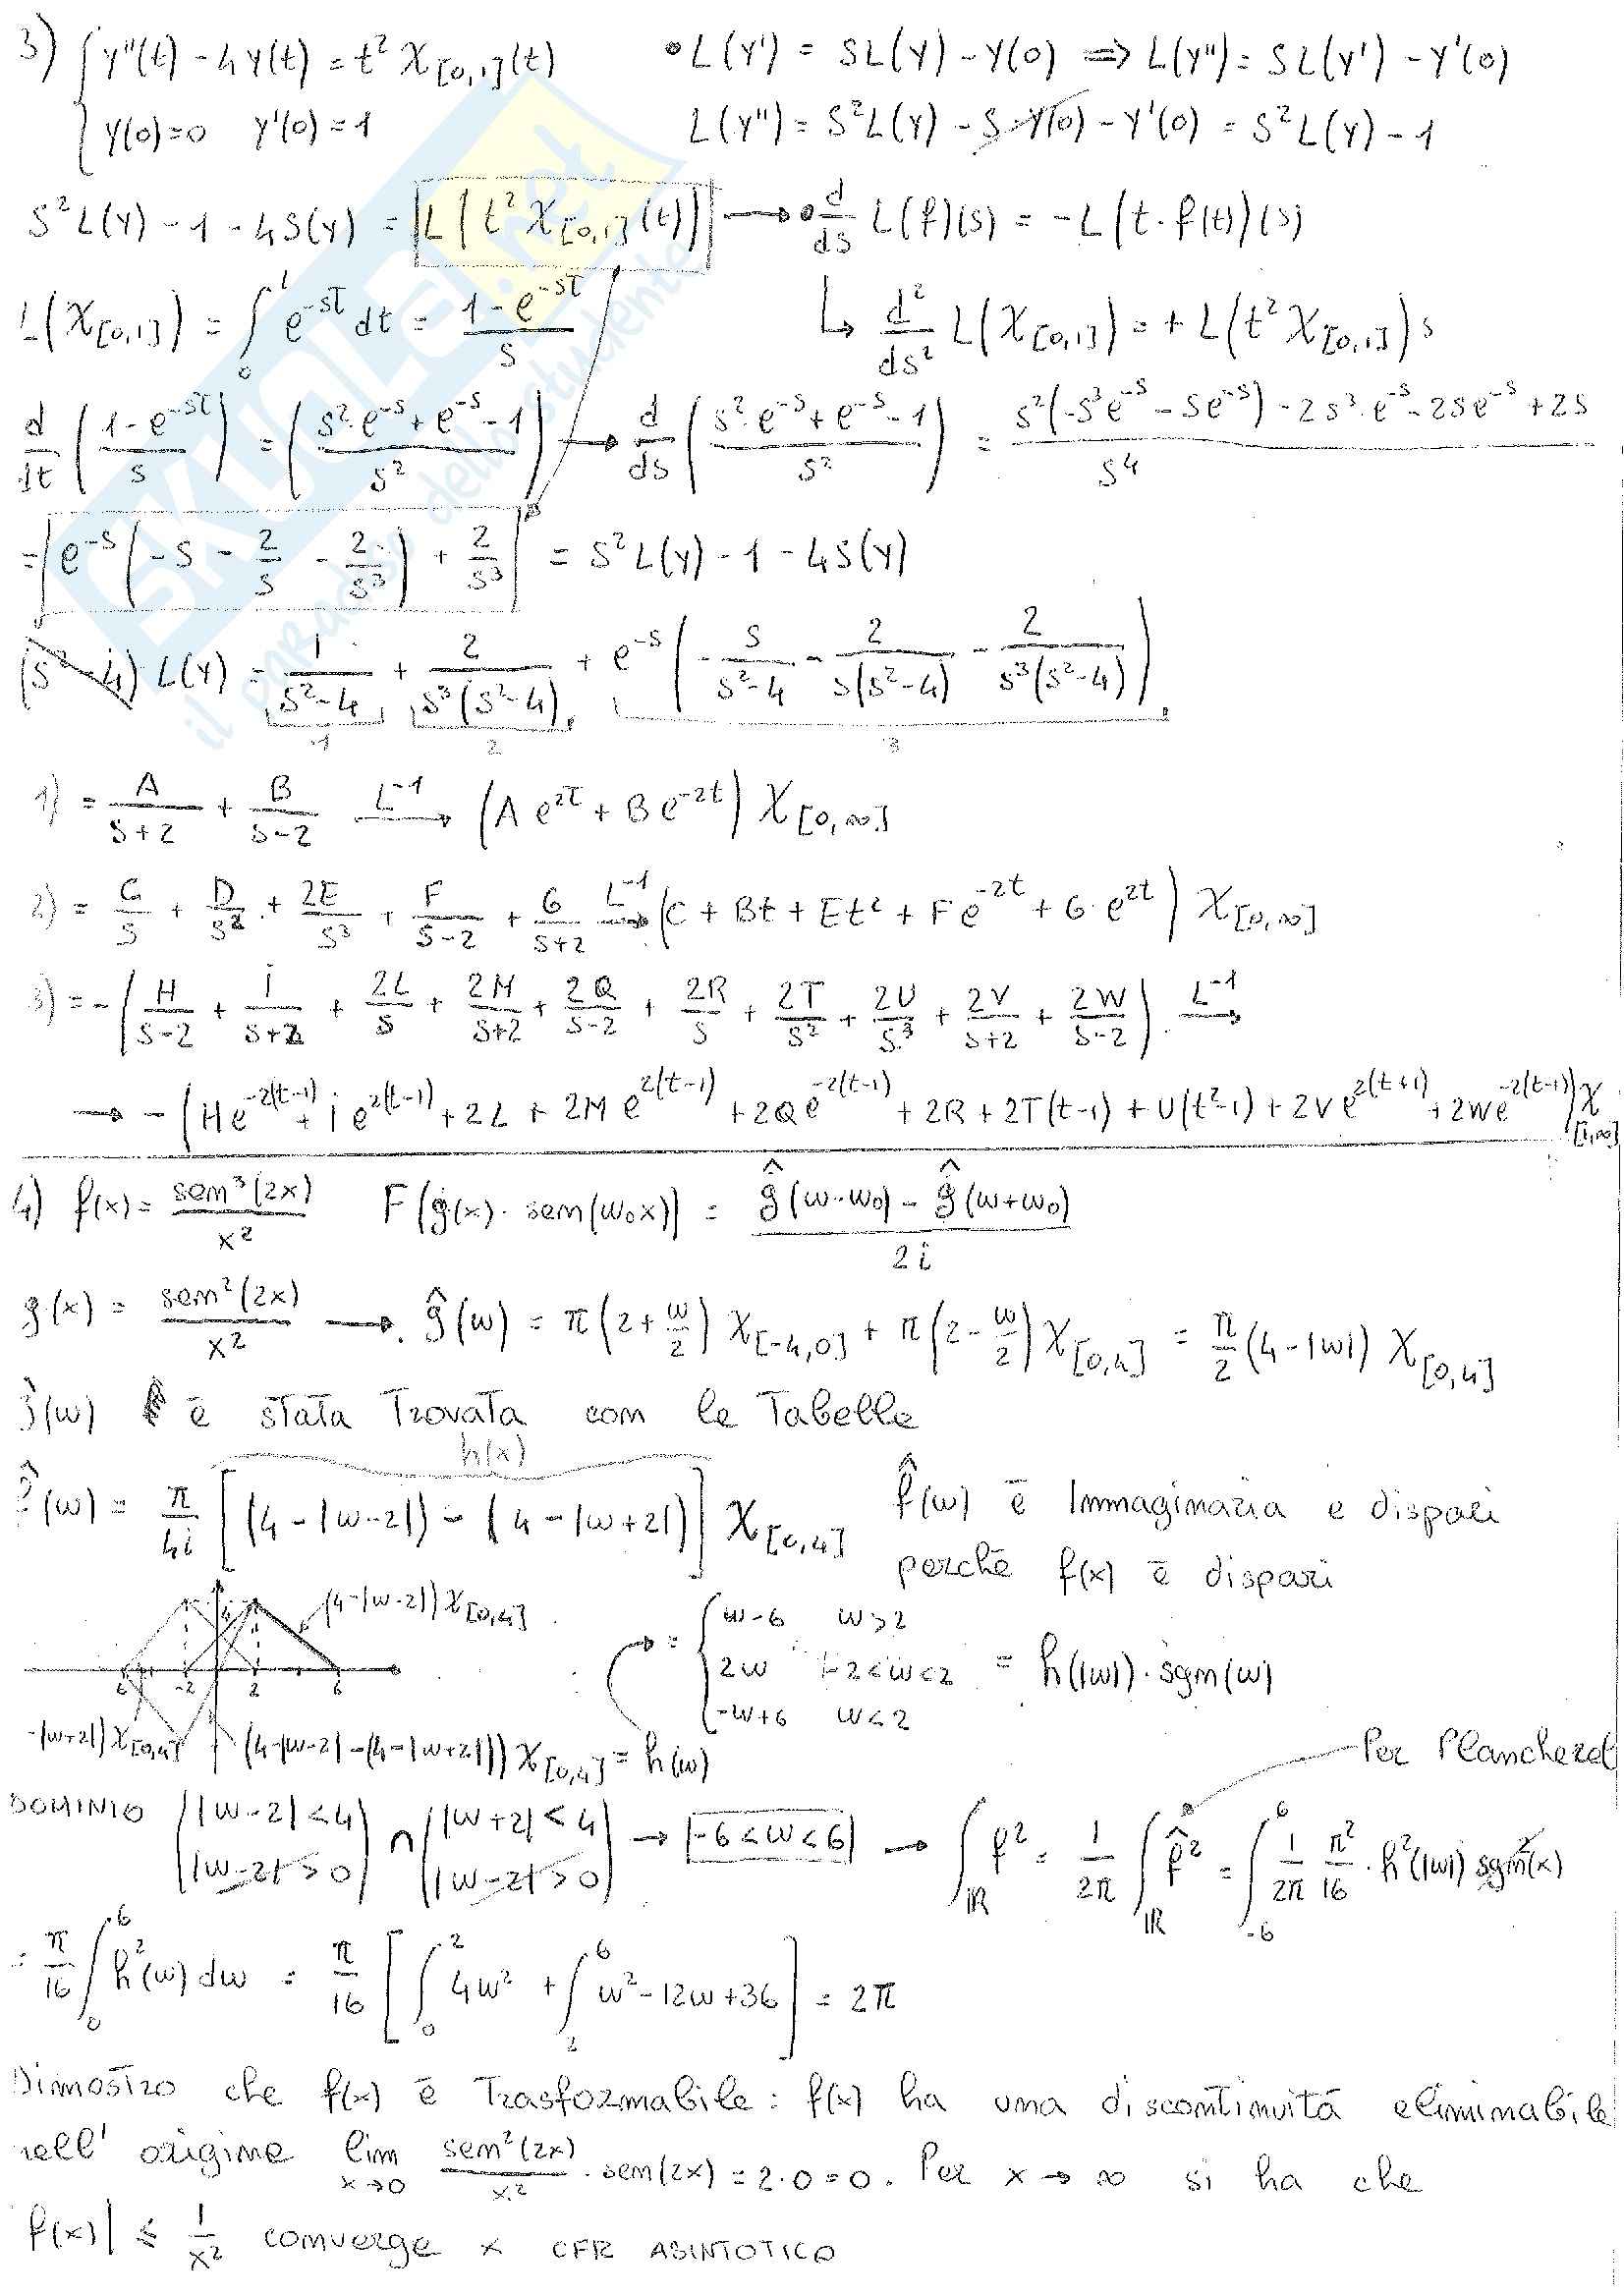 3) { y''(t) - 4y(t) = t² χ[0,1](t)   • L(y') = sL(y) - y(0) ⇒ L(y'') = sL(y') - y'(0)
y(0)=0   y'(0)=1   L(y'') = s²L(y) - s y(0) - y'(0) = s²L(y) - 1
s²L(y) - 1 - 4s(y) = L(t² χ[0,1](t)) → • d/ds L(f)(s) = -L(t·f(t))(s)
L(χ[0,1]) = ∫₀¹ e^{-st} dt = (1-e^{-st})/s   ↳ d²/ds² L(χ[0,1]) = + L(t² χ[0,1])s
d/dt ((1-e^{-st})/s) = ((s²·e^{-s}+e^{-s}-1)/s²) → d/ds ((s²·e^{-s}+e^{-s}-1)/s²) = (s²(-s³e^{-s} - se^{-s}) - 2s³·e^{-s} - 2se^{-s} + 2s)/s⁴
= e^{-s}(-s - 2/s - 2/s³) + 2/s³ = s²L(y) - 1 - 4s(y)
(s²-4) L(y) = 1/(s²-4) + 2/(s³(s²-4)) + e^{-s}(-s/(s²-4) - 2/(s(s²-4)) - 2/(s³(s²-4)))
1   2   3
1) = A/(s+2) + B/(s-2) L⁻¹→ (A e^{2t} + B e^{-2t}) χ[0,∞]
2) = C/s + D/s² + 2E/s³ + F/(s-2) + G/(s+2) L⁻¹→ (C + Bt + Et² + F e^{-2t} + G·e^{2t}) χ[0,∞]
3) = -(H/(s-2) + i/(s+2) + 2L/s + 2M/(s+2) + 2Q/(s-2) + 2R/s + 2T/s² + 2U/s³ + 2V/(s+2) + 2W/(s-2)) L⁻¹→
→ -(He^{-2(t-1)} + i e^{2(t-1)} + 2L + 2M e^{2(t-1)} + 2Qe^{-2(t-1)} + 2R + 2T(t-1) + U(t²-1) + 2Ve^{2(t+1)} + 2We^{-2(t-1)}) χ[1,∞]
4) f(x) = sen³(2x)/x²   F(g(x)·sen(ω₀x)) = (ĝ(ω-ω₀) - ĝ(ω+ω₀))/2i
g(x) = sen²(2x)/x² → ĝ(ω) = π(2+ω/2) χ[-4,0] + π(2-ω/2) χ[0,4] = π/2 (4-|ω|) χ[0,4]
ĝ(ω) è stata trovata con le tabelle
h(x)
f̂(ω) = π/4i [(4-|ω-2|) - (4-|ω+2|)] χ[0,4]   f̂(ω) è immaginaria e dispari
perchè f(x) è dispari
4   (4-|ω-2|) χ[0,4]   → = { ω-6   ω>2
6   -2   2   6   2ω   -2<ω<2   = h(|ω|)·sgn(ω)
-ω+6   ω<2
-|ω+2|) χ[0,4]   (4-|ω-2|-(4-|ω+2|)) χ[0,4] = h(ω)   Per Plancherel
DOMINIO (|ω-2|<4 |ω-2|>0) ∩ (|ω+2|<4 |ω-2|>0) → -6<ω<6 → ∫ℝ f² = 1/2π ∫ℝ f̂² = ∫₋₆⁶ 1/2π π²/16 · h²(|ω|) sgn²(x)
= π/16 ∫₀⁶ h²(ω) dω = π/16 [∫₀² 4ω² + ∫₂⁶ ω²-12ω+36] = 2π
Dimostro che f(x) è trasformabile: f(x) ha una discontinuità eliminabile
nell' origine lim x→0 sen²(2x)/x² · sen(2x) = 2·0 = 0. Per x → ∞ si ha che
f(x)| ≤ 1/x² converge x CFR ASINTOTICO
SKUOLA.net